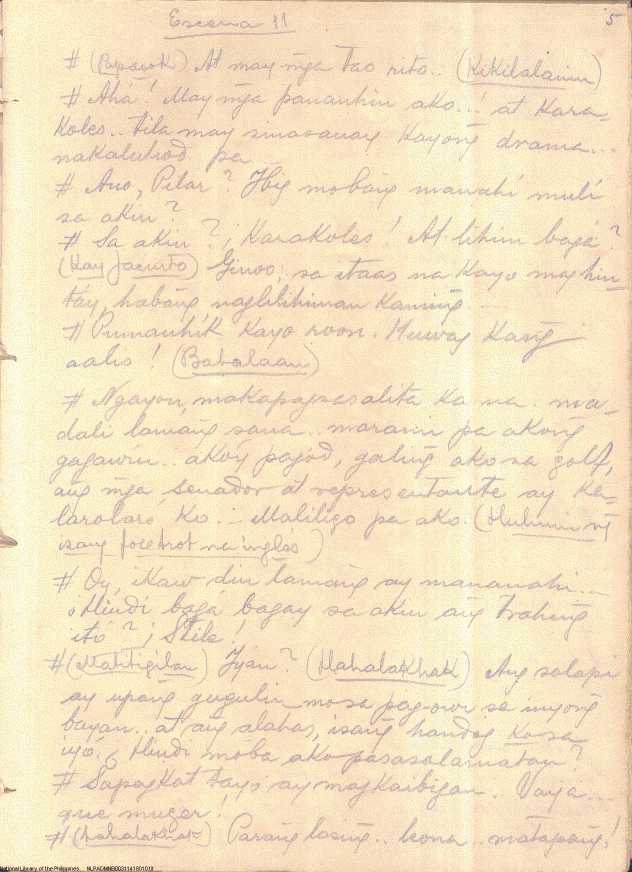 Escena 11
5
# (Papasok) At may mga tao rito.. (Kikilalanin)
# Ahá! May mga panauhin ako..! at Kara-
Koles.. tila may Kayong drama...
nakaluhod pa...
# Ano, Pilar? Ibig mobang manahi muli
sa akin?
# Sa akin? ¡Karakoles! At lihim bagá?
(Kay Jacinto) Ginoo: sa itaas na Kayo maghin-
táy, habang naglilihiman Kaming..
# Pumanhík Kayo roon. Huwag Kang
aalis! (Babalaan)
# Ngayon, makapagsasalita Ka na.. ma-
dali lamang sana.. marami pa akong
gagawin.. ako'y pagod, galing ako sa golf,
ang mga senador at representante ay Ka-
larolaró Ko... Maliligo pa ako. (Huhunin ng
isang foxtrot na ingles)
# Oy, ikaw din lamang ay mananahi...
¿Hindi bagá bagay sa akin ang trahing
itó? ¡Stile!
# (Matitigilan) Iyan? (Hahalakhak) Ang salapi
ay upang gugulin mosa pag-owi sa inyong
bayan.. at ang alahas, isang handog Ko sa
iyo. ¿Hindi moba ako pasasalamatan?
# Sapagkat tayo ay magkaibigan.. Vaya...
que muger!
# (hahalakhak) Parang lasing.. leona.. matapang!
National Library of the Philippines